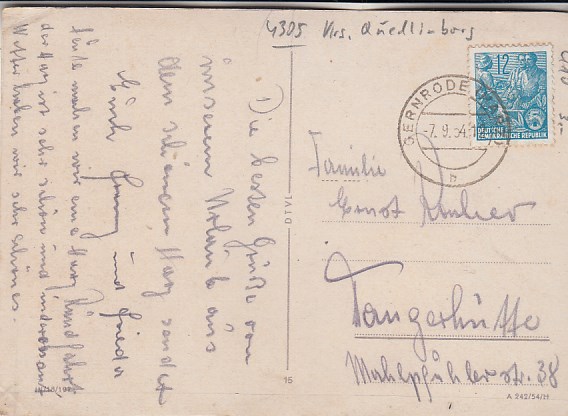 4305 Krs. Quedlinburg
Die besten Grüße von
unserem Urlaub aus
dem schönem Harz sendet
Euch und Frieda
heute machen wir eine Harz Rundfahrt
der Harz ist sehr schön und interessant
Wetter haben wir sehr schönes.
GERNRODE
-7.9.54
h
12
DEUTSCHE
DEMOKRATISCHE REPUBLIK
Familie
Ernst
Tangerhütte
Mahlpfuhler str. 38
15
A 242/54/H